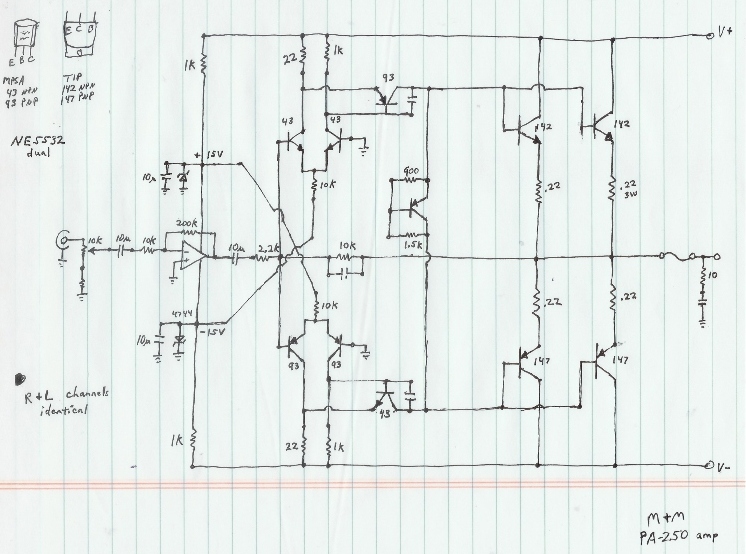 E C B
E B C
MPSA
43 NPN
93 PNP
TIP
142 NPN
147 PNP
NE5532
dual
V+
1k
22
1k
93
43
43
142
142
+15V
10µ
10k
900
.22
.22
3W
200k
10k
10µ
10k
10µ
2.2k
10k
1.5k
10
10k
.22
.22
4744
-15V
10µ
93
93
147
147
R+L channels
identical
43
1k
22
1k
V-
M+M
PA-250 amp